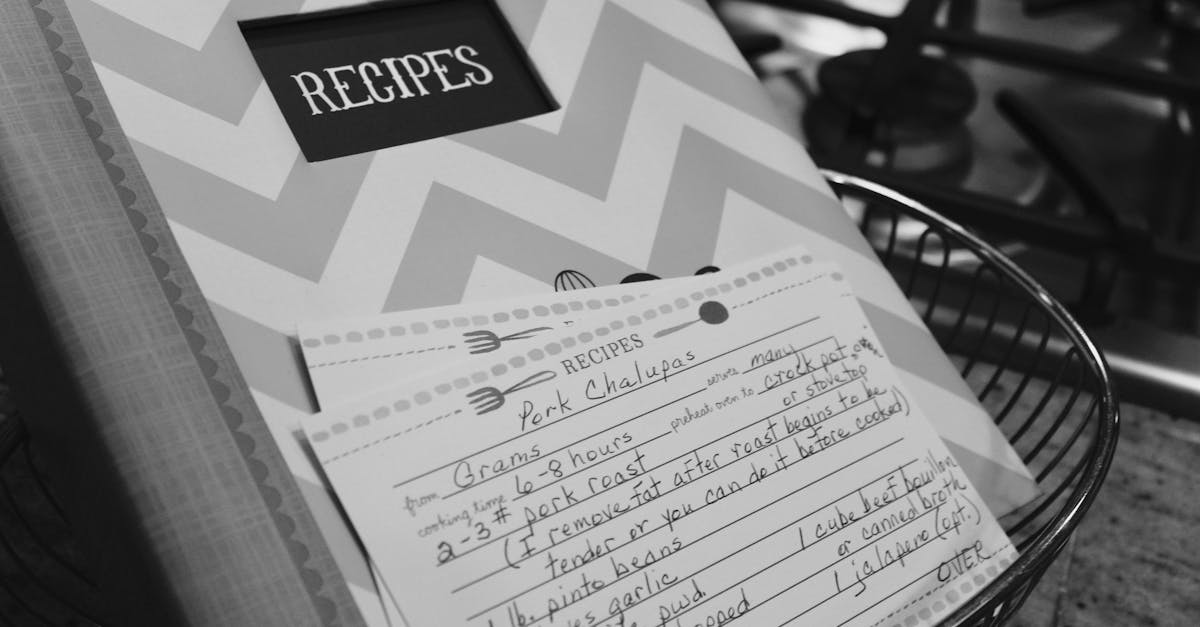 RECIPES
RECIPES
Pork Chalupas
from Grams serves many
cooking time 6-8 hours preheat oven to crock pot, oven
or stove top
2-3# pork roast
(I remove fat after roast begins to be
tender or you can do it before cooked)
1 lb. pinto beans 1 cube beef bouillon
garlic or canned broth
pwd. 1 jalapeno (opt.)
OVER